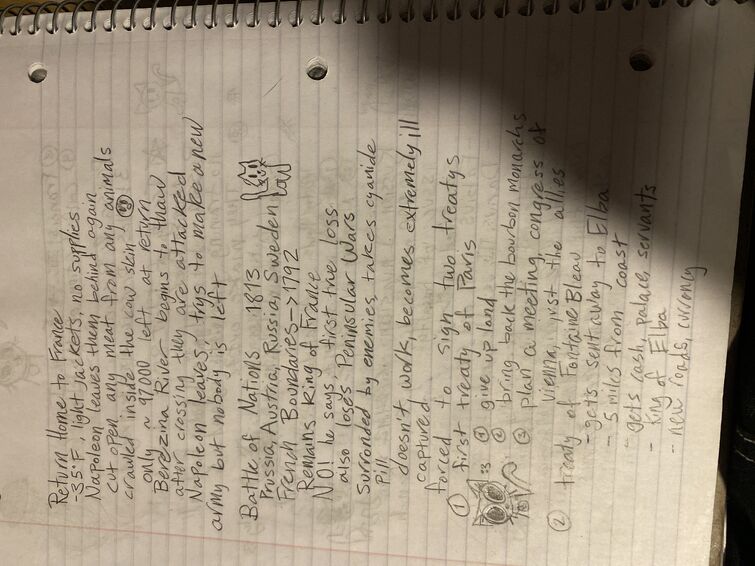 Return Home to France
-35°F, light jackets, no supplies
Napoleon leaves them behind again
cut open any meat from any animals
crawled inside the cow skin
only ~ 97000 left at return
Berezina River begins to thaw
after crossing they are attacked
Napoleon leaves, trys to make a new
army but nobody is left
Battle of Nations 1813
Prussia, Austria, Russia, Sweden
French Boundaries -> 1792
Remains King of France
NO! he says, first true loss
also loses Peninsular Wars
Surronded by enemies, takes cyanide
pill
doesn't work, becomes extremely ill
captured
forced to sign two treatys
① first treaty of Paris
① give up land
② bring back the bourbon monarchs
③ plan a meeting, congress of
vienna, just the allies
② treaty of Fontaine Bleau
- gets sent away to Elba
- 5 miles from coast
- gets cash, palace, servants
- King of Elba
- new roads, currency